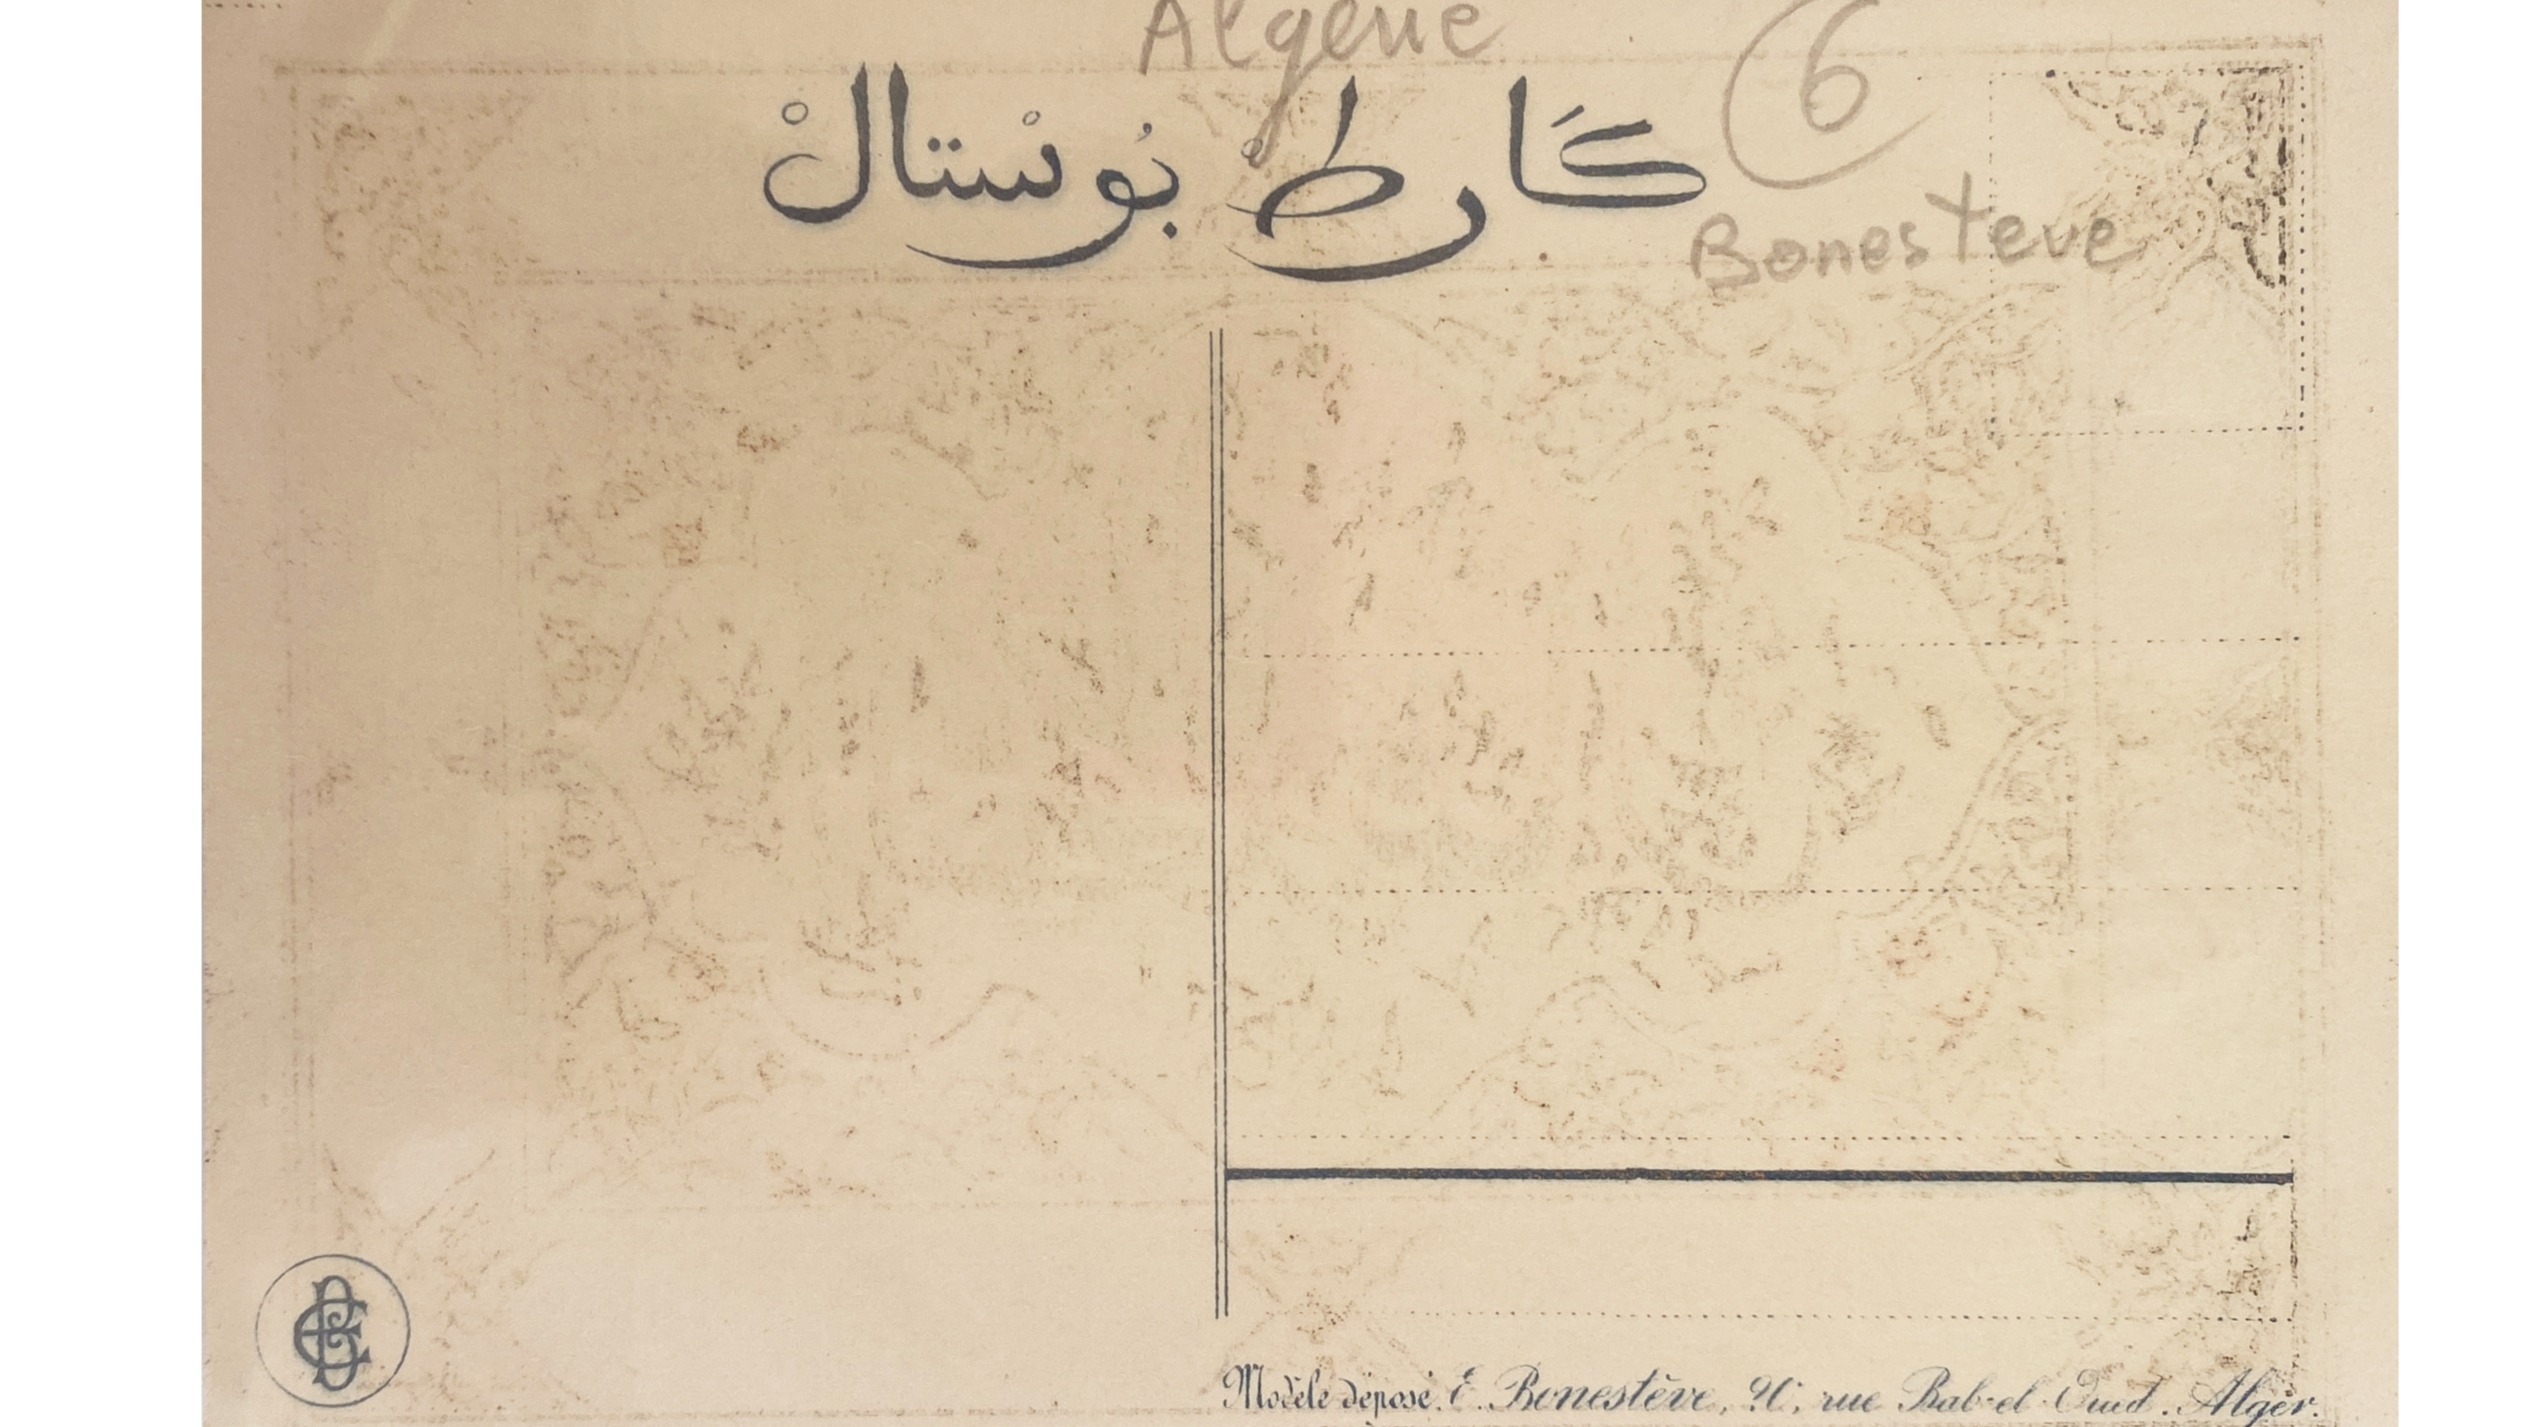 Algérie
6
كَارطْ بُوسْتَالْ
Bonesteve
Modèle déposé. E. Bonestève, rue Bab-el-Oued. Alger.